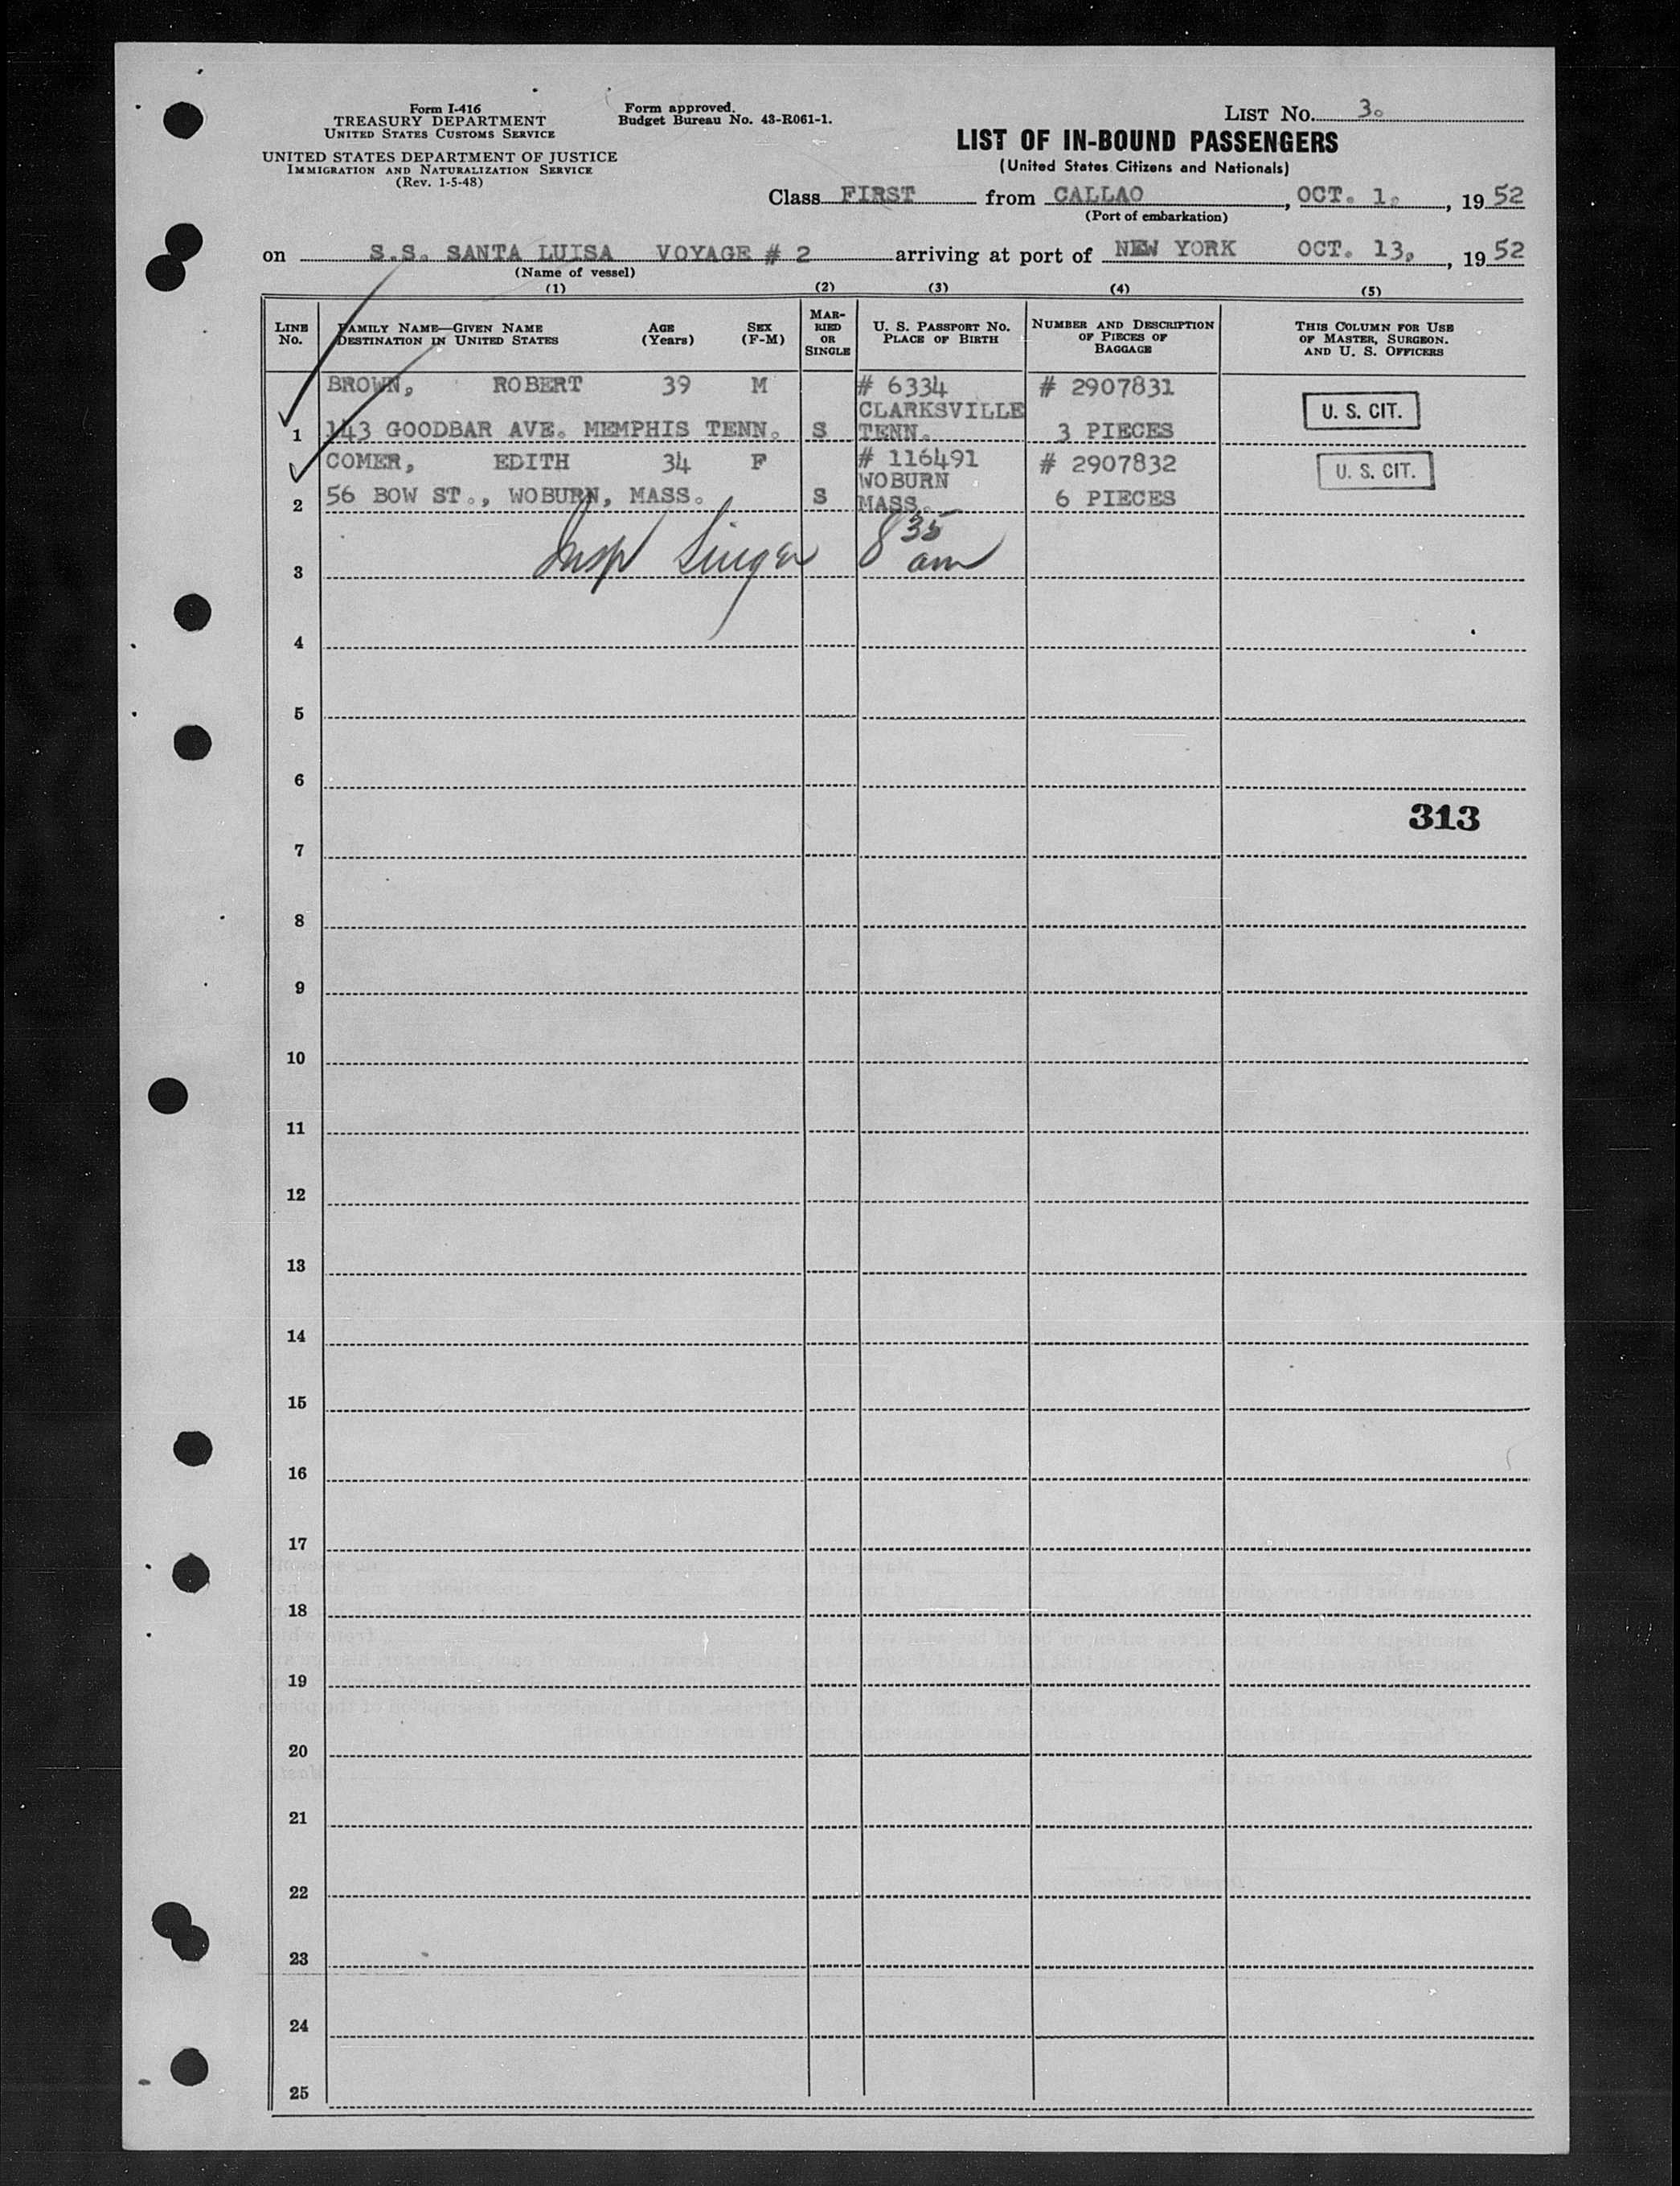 Form I-416
TREASURY DEPARTMENT
UNITED STATES CUSTOMS SERVICE
UNITED STATES DEPARTMENT OF JUSTICE
IMMIGRATION AND NATURALIZATION SERVICE
(Rev. 1-5-48)
Form approved.
Budget Bureau No. 43-R061-1.
LIST No. 3.
LIST OF IN-BOUND PASSENGERS
(United States Citizens and Nationals)
Class FIRST from CALLAO, OCT. 1, 1952
(Port of embarkation)
on S.S. SANTA LUISA VOYAGE # 2 arriving at port of NEW YORK OCT. 13, 1952
(Name of vessel)
(1) (2) (3) (4) (5)
LINE No.
FAMILY NAME—GIVEN NAME
DESTINATION IN UNITED STATES
AGE (Years)
SEX (F-M)
MARRIED OR SINGLE
U. S. PASSPORT No.
PLACE OF BIRTH
NUMBER AND DESCRIPTION
OF PIECES OF
BAGGAGE
THIS COLUMN FOR USE
OF MASTER, SURGEON.
AND U. S. OFFICERS
BROWN, ROBERT 39 M # 6334 # 2907831
CLARKSVILLE U. S. CIT.
1 143 GOODBAR AVE. MEMPHIS TENN. S TENN. 3 PIECES
COMER, EDITH 34 F # 116491 # 2907832
WOBURN U. S. CIT.
2 56 BOW ST., WOBURN, MASS. S MASS. 6 PIECES
Insp Singer 8 35 am
3
4
5
6
313
7
8
9
10
11
12
13
14
15
16
17
18
19
20
21
22
23
24
25